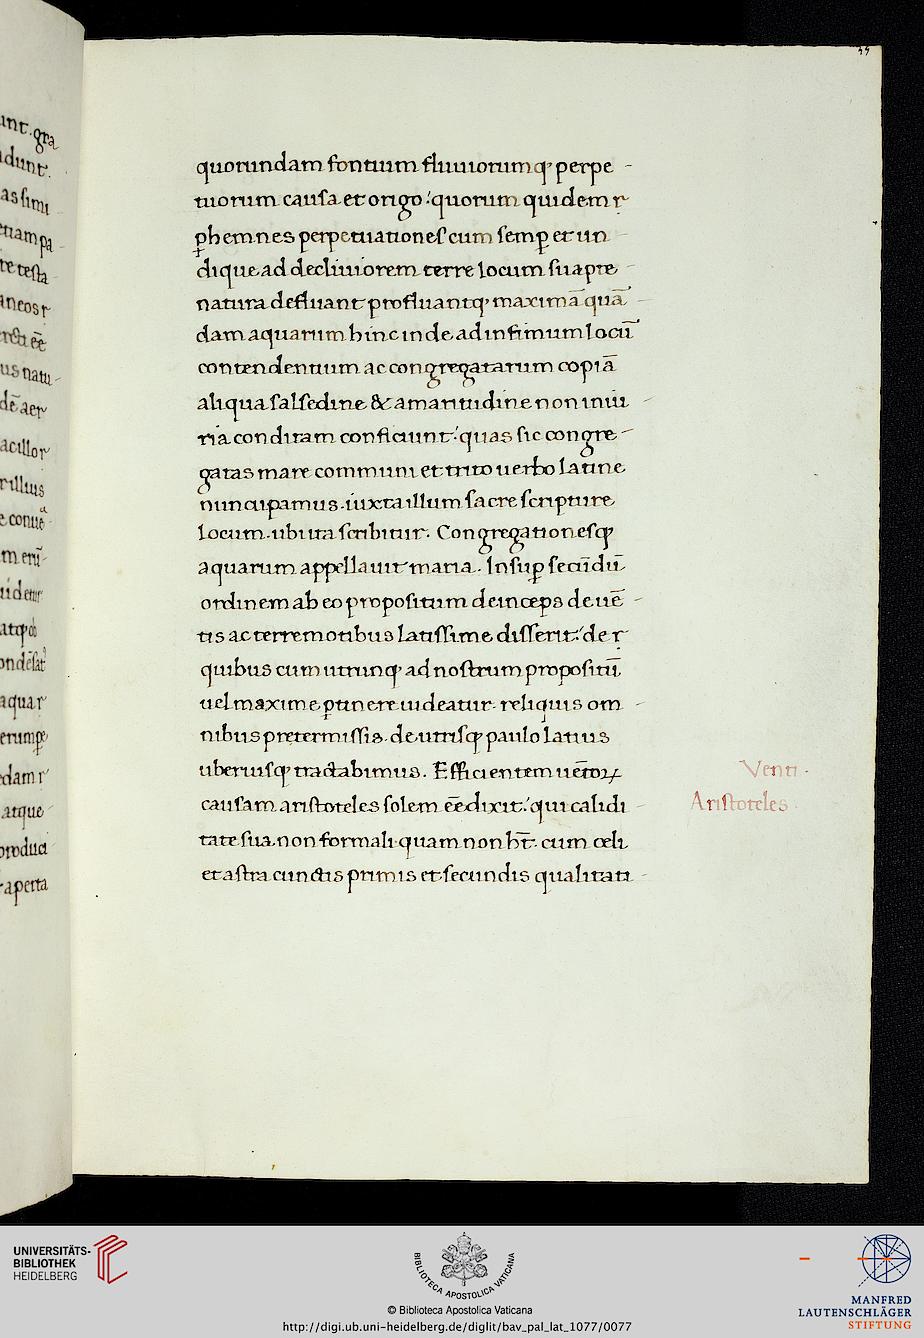 unt. gra
dunt.
as simi
etiam pa
te testa
aneos r
us natu
dē aer
acillor
rillius
e conue
m erū
uidetur
aqua r
erumpe
dam r
atque
produci
aperta
quorundam fontium fluuiorumq; perpe-
tuorum causa et origo: quorum quidem r
ꝑhemnes perpetuationes cum semꝑ et un-
dique ad decliuiorem terre locum suapte
natura defluant profluantq; maximā quā-
dam aquarum hinc inde ad infimum locū
contendentium ac congregatarum copiā
aliqua salsedine & amaritudine non iniu-
ria conditam conficiunt: quas sic congre-
gatas mare communi et trito uerbo latine
nuncupamus. iuxta illum sacre scripture
locum. ubi ita scribitur. Congregationesq;
aquarum appellauit maria. Insuꝑ secūdū
ordinem ab eo propositum deinceps de uē-
tis ac terremotibus latissime disserit: de r
quibus cum utrunq; ad nostrum propositū
uel maxime ꝑtinere uideatur. reliquis om-
nibus pretermissis. de utrisq; paulo latius
uberiusq; tractabimus. Efficientem uētoꝝ
causam aristoteles solem eē dixit: qui calidi-
tate sua. non formali quam non ht̄. cum celi
et astra cunctis primis et secundis qualitati-
Venti.
Aristoteles.
UNIVERSITÄTS-
BIBLIOTHEK
HEIDELBERG
BIBLIOTECA APOSTOLICA VATICANA
© Biblioteca Apostolica Vaticana
http://digi.ub.uni-heidelberg.de/diglit/bav_pal_lat_1077/0077
MANFRED
LAUTENSCHLÄGER
STIFTUNG